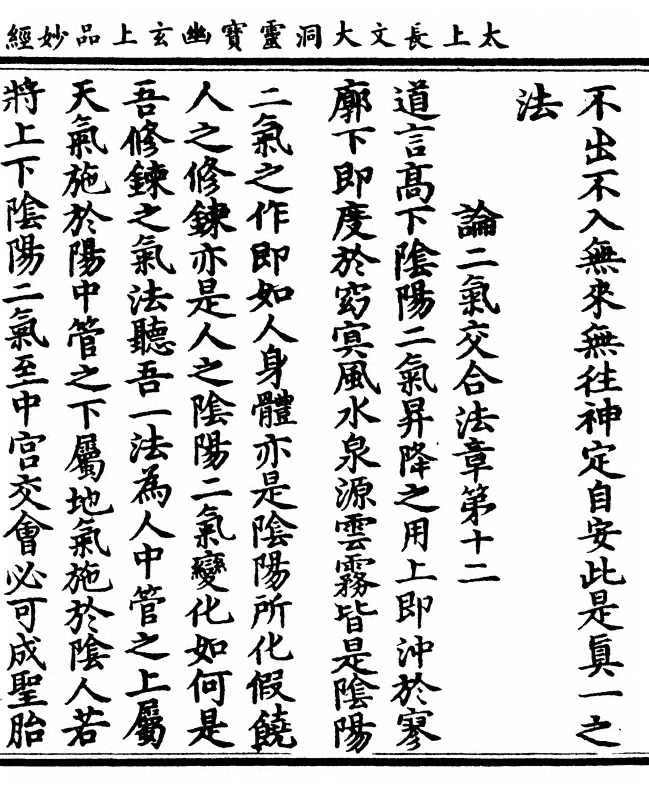 太上長文大洞靈寶幽玄上品妙經
不出不入無來無往神定自安此是真一之
法
論二氣交合法章第十二
道言高下陰陽二氣昇降之用上即沖於寥
廓下即度於窈冥風水泉源雲霧皆是陰陽
二氣之作即如人身體亦是陰陽所化假饒
人之修鍊亦是人之陰陽二氣變化如何是
吾修鍊之氣法聽吾一法為人中管之上屬
天氣施於陽中管之下屬地氣施於陰人若
將上下陰陽二氣至中宮交會必可成聖胎